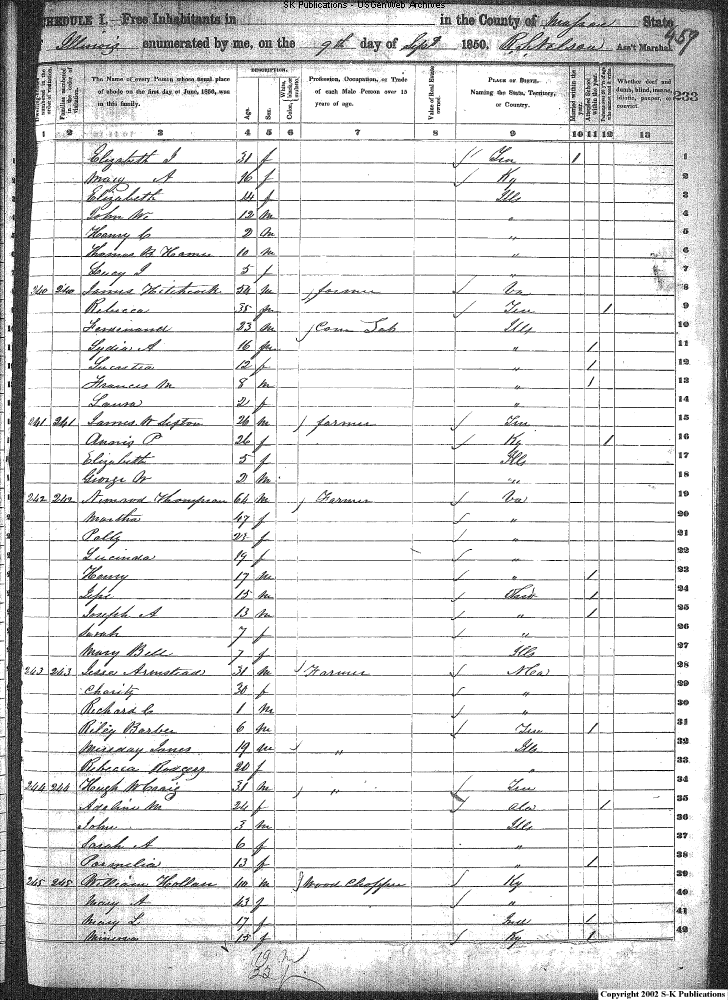 SK Publications - USGenWeb Archives
SCHEDULE I. Free Inhabitants in in the County of Massac State
Illinois enumerated by me, on the 9th day of Sept 1850. Ass't Marshal. 459
233
DESCRIPTION.
The Name of every Person whose usual place of abode on the first day of June, 1850, was in this family.
Age. Sex. Color,
Profession, Occupation, or Trade of each Male Person over 15 years of age.
Value of Real Estate owned.
PLACE OF BIRTH. Naming the State, Territory, or Country.
Married within the year.
Whether deaf and dumb, blind, insane, idiotic, pauper, or convict.
1 2 3 4 5 6 7 8 9 10 11 12 13
Elizabeth J 31 f Ten 1 1
Mary A 16 f Ky 2
Elizabeth 14 f Ills 3
John W. 12 m " 4
Henry C 2 m " 5
Thomas B 10 m " 6
Lucy J 5 f " 7
240 240 James Hitchcock 54 m farmer Va 8
Rebecca 35 Ten 1 9
Ferdinand 23 m Com Lab Ills 10
Lydia A 16 " 1 11
12 f " 1 12
Frances M 8 m " 1 13
Laura 2 f " 14
241 241 James W Sexton 26 m farmer Ten 15
P 26 f Ky 1 16
Elizabeth 5 f Ills 17
George W 2 m " 18
242 242 Nimrod Thompson 64 m Farmer Va 19
Martha 47 f " 20
Polly f " 21
Lucinda 19 f " 22
Henry 17 m " 1 23
15 m Ohio 1 24
Joseph A 13 m " 1 25
Sarah 7 f " 26
Mary Bell 7 f Ills 27
243 243 Jesse Armstead 31 m Farmer N Ca 28
Charity 30 f " 29
Richard C 1 m " 30
Riley Barber 6 m Ten 1 31
Jones 19 m " Ills 32
Rebecca Rodgers 20 f "
244 244 Hugh W Craig 31 m " Ten 34
Adaline M 24 f Ala 1 35
John 3 m Ills 36
Sarah A 6 f " 37
Parmelia 13 f " 1 38
245 245 William 40 m Wood Chopper Ky 39
Mary A 43 f " 40
Mary L 17 f Ind 1 41
Minerva 15 f Ky 1 42
19 m
22 f
Copyright 2002 S-K Publications